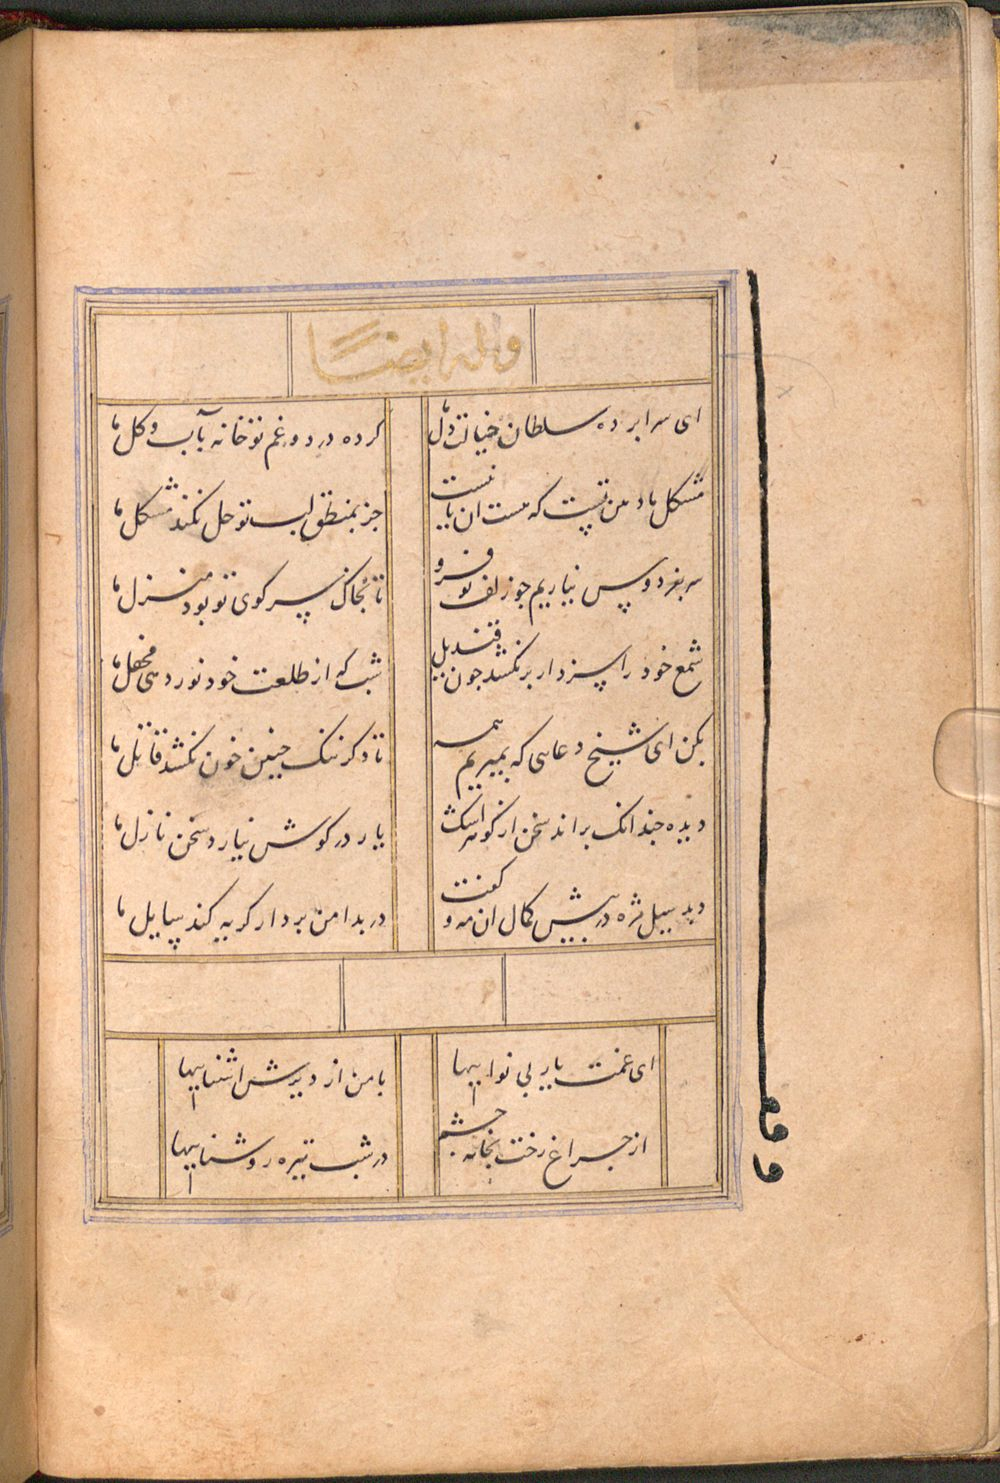 وله ایضاً
ای سرابرده سلطان خیالت دل ما
کرده درد و غم تو خانه بآب و کل ما
مشکل ماد من تست که هست ان یا نیست
جز بمنطق لب تو حل نکند مشکل ما
سر بفردوس نیاریم جو زلف تو فرو
تا بخاک سر کوی تو بود منزل ما
شمع خود را بسزد ار برنکشد جون قندیل
شب که از طلعت خود نور دهی محفل ما
بکن ای شیخ دعایی که بمیریم همه
تا دکر ننک جنین خون نکشد قاتل ما
دیده جندانک براند سخن از کوهر اشک
یار در کوش نیارد سخن نازل ما
دید سیل مژه در بیش کمال ان مه و کفت
در بدامن بر دار کریه کند سایل ما
ای غمت یار بی نواییها
با من از دیرش اشناییها
از جراغ رخت بخانه جشم
در شب تیره روشناییها